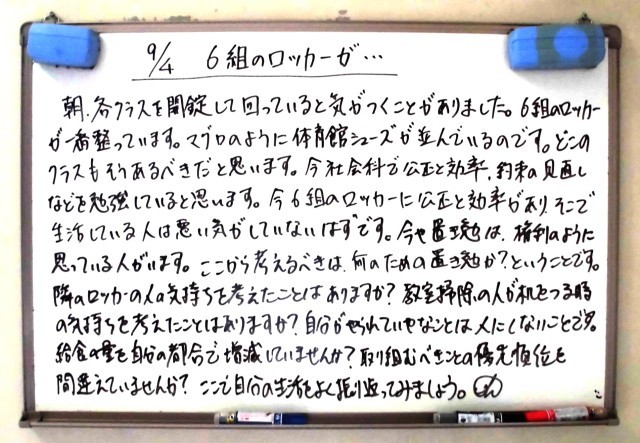 9/4 6組のロッカーが…
朝、各クラスを開錠して回っていると気がつくことがありました。6組のロッカー
が一番整っています。マグロのように体育館シューズが並んでいるのです。どこの
クラスもそうあるべきだと思います。今社会科で公正と効率、約束の見直し
などを勉強していると思います。今6組のロッカーに公正と効率があり、そこで
生活している人は悪い気がしていないはずです。今や置き勉は、権利のように
思っている人がいます。ここから考えるべきは、何のための置き勉か?ということです。
隣のロッカーの人の気持ちを考えたことはありますか?教室掃除の人が机をつる時
の気持ちを考えたことはありますか?自分がやられていやなことは人にしないことです。
給食の量を自分の都合で増減していませんか?取り組むべきことの優先順位を
間違えていませんか?ここで自分の生活をよく振り返ってみましょう。